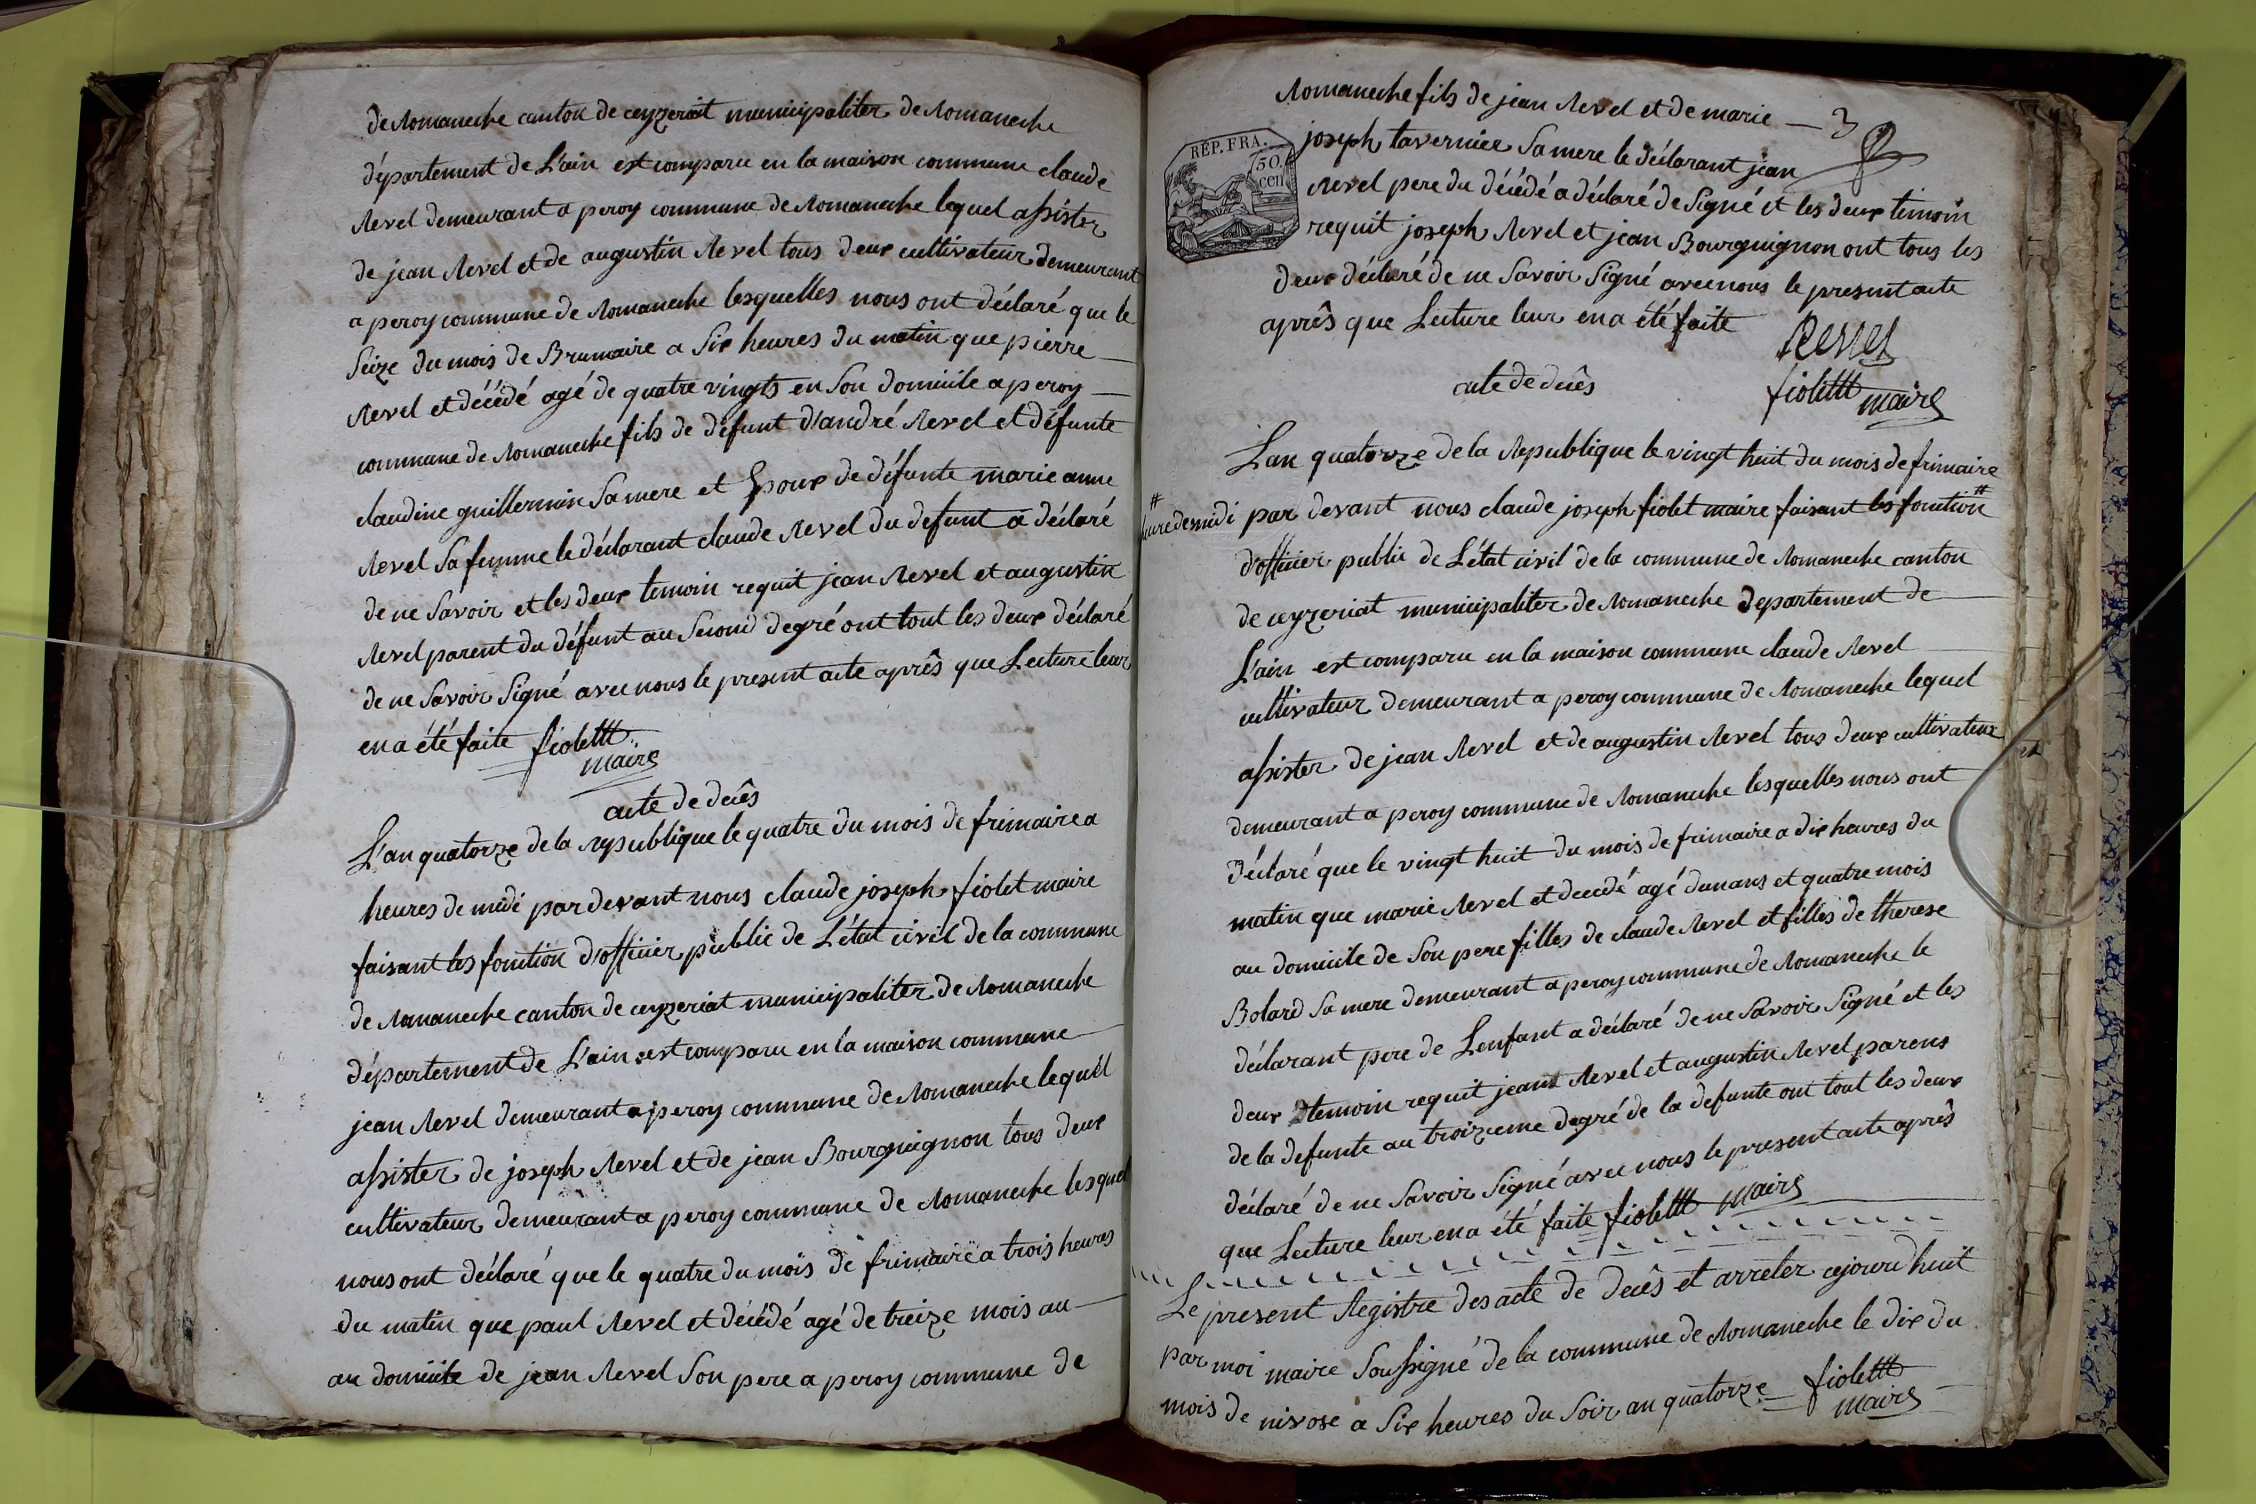 de Romaneche canton de ceyzeriat municipaliter de Romaneche
département de L'ain est comparu en la maison commune claude
Revel demeurant a peroy commune de Romaneche lequel assister
de jean Revel et de augustin Revel tous deux cultivateur demeurant
a peroy commune de Romaneche lesquelles nous ont déclaré que le
Seize du mois de Brumaire a Six heures du matin que pierre
Revel et décédé agé de quatre vingts en Son domicile a peroy
commune de Romaneche fils de défunt d'andré Revel et défunte
claudine guillermin Sa mere et Epoux de défunte marie anne
Revel Sa femme le déclarant claude Revel du defunt a déclaré
de ne Savoir et les deux temoin requit jean Revel et augustin
Revel parent du défunt au Second degré ont tout les deux déclaré
de ne Savoir Signé avec nous le present acte après que Lecture leur
en a été faite fiolettt
maire
acte de decês
L'an quatorze de la republique le quatre du mois de frimaire a
heures de midi par devant nous claude joseph fiolet maire
faisant les fonction d'officier public de L'état civil de la commune
de Romaneche canton de ceyzeriat municipaliter de Romaneche
département de L'ain est comparu en la maison commune
jean Revel demeurant a peroy commune de Romaneche lequel
assister de joseph Revel et de jean Bourguignon tous deux
cultivateur demeurant a peroy commune de Romaneche lesquel
nous ont déclaré que le quatre du mois de frimaire a trois heures
du matin que paul Revel et décédé agé de treize mois au
au domicile de jean Revel Son pere a peroy commune de
Romaneche fils de jean Revel et de marie — 3
REP. FRA.
50
cen
joseph tavernier Sa mere le déclarant jean
Revel pere du décédé a déclaré de Signé et les deux temoin
requit joseph Revel et jean Bourguignon ont tous les
deux déclaré de ne Savoir Signé avec nous le present acte
après que Lecture leur en a été faite
Revel
acte de decês
fiolettt maire
Lan quatorze de la Republique le vingt huit du mois de frimaire
# heure de midi par devant nous claude joseph fiolet maire faisant les fonction #
d'officier public de L'état civil de la commune de Romaneche canton
de ceyzeriat municipaliter de Romaneche departement de
L'ain est comparu en la maison commune claude Revel
cultivateur demeurant a peroy commune de Romaneche lequel
assister de jean Revel et de augustin Revel tous deux cultivateur
demeurant a peroy commune de Romaneche lesquelles nous ont
déclaré que le vingt huit du mois de frimaire a dix heures du
matin que marie Revel et decedé agé dun ans et quatre mois
au domicile de Son pere filles de claude Revel et filles de therese
Bolard Sa mere demeurant a peroy commune de Romaneche le
déclarant pere de Lenfant a déclaré de ne Savoir Signé et les
deux temoin requit jean Revel et augustin Revel parens
de la defunte au troizieme degré de la defunte ont tout les deux
déclaré de ne Savoir Signé avec nous le present acte après
que Lecture leur en a été faite fiolettt maire
Le present Registre des acte de decês et arreter cejourd huit
par moi maire Soussigné de la commune de Romaneche le dix du
mois de nivose a Six heures du Soir an quatorze fiolettt
maire